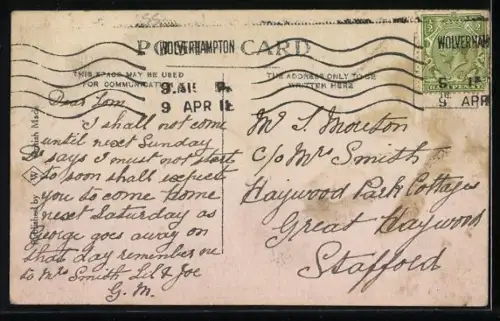 POST CARD
WOLVERHAMPTON
9 APR 1
WOLVERHAM
9 APR
THIS SPACE MAY BE USED
FOR COMMUNICATION
THE ADDRESS ONLY TO BE
WRITTEN HERE
British Made
Published by W
Dear Tom
I shall not come
until next Sunday
says I must not start
so soon shall expect
you to come home
next Saturday as
George goes away on
that day remember me
to Mrs Smith Lil & Joe
G. M.
Mr T. Moreton
c/o Mrs Smith
Haywood Park Cottages
Great Haywood
Stafford